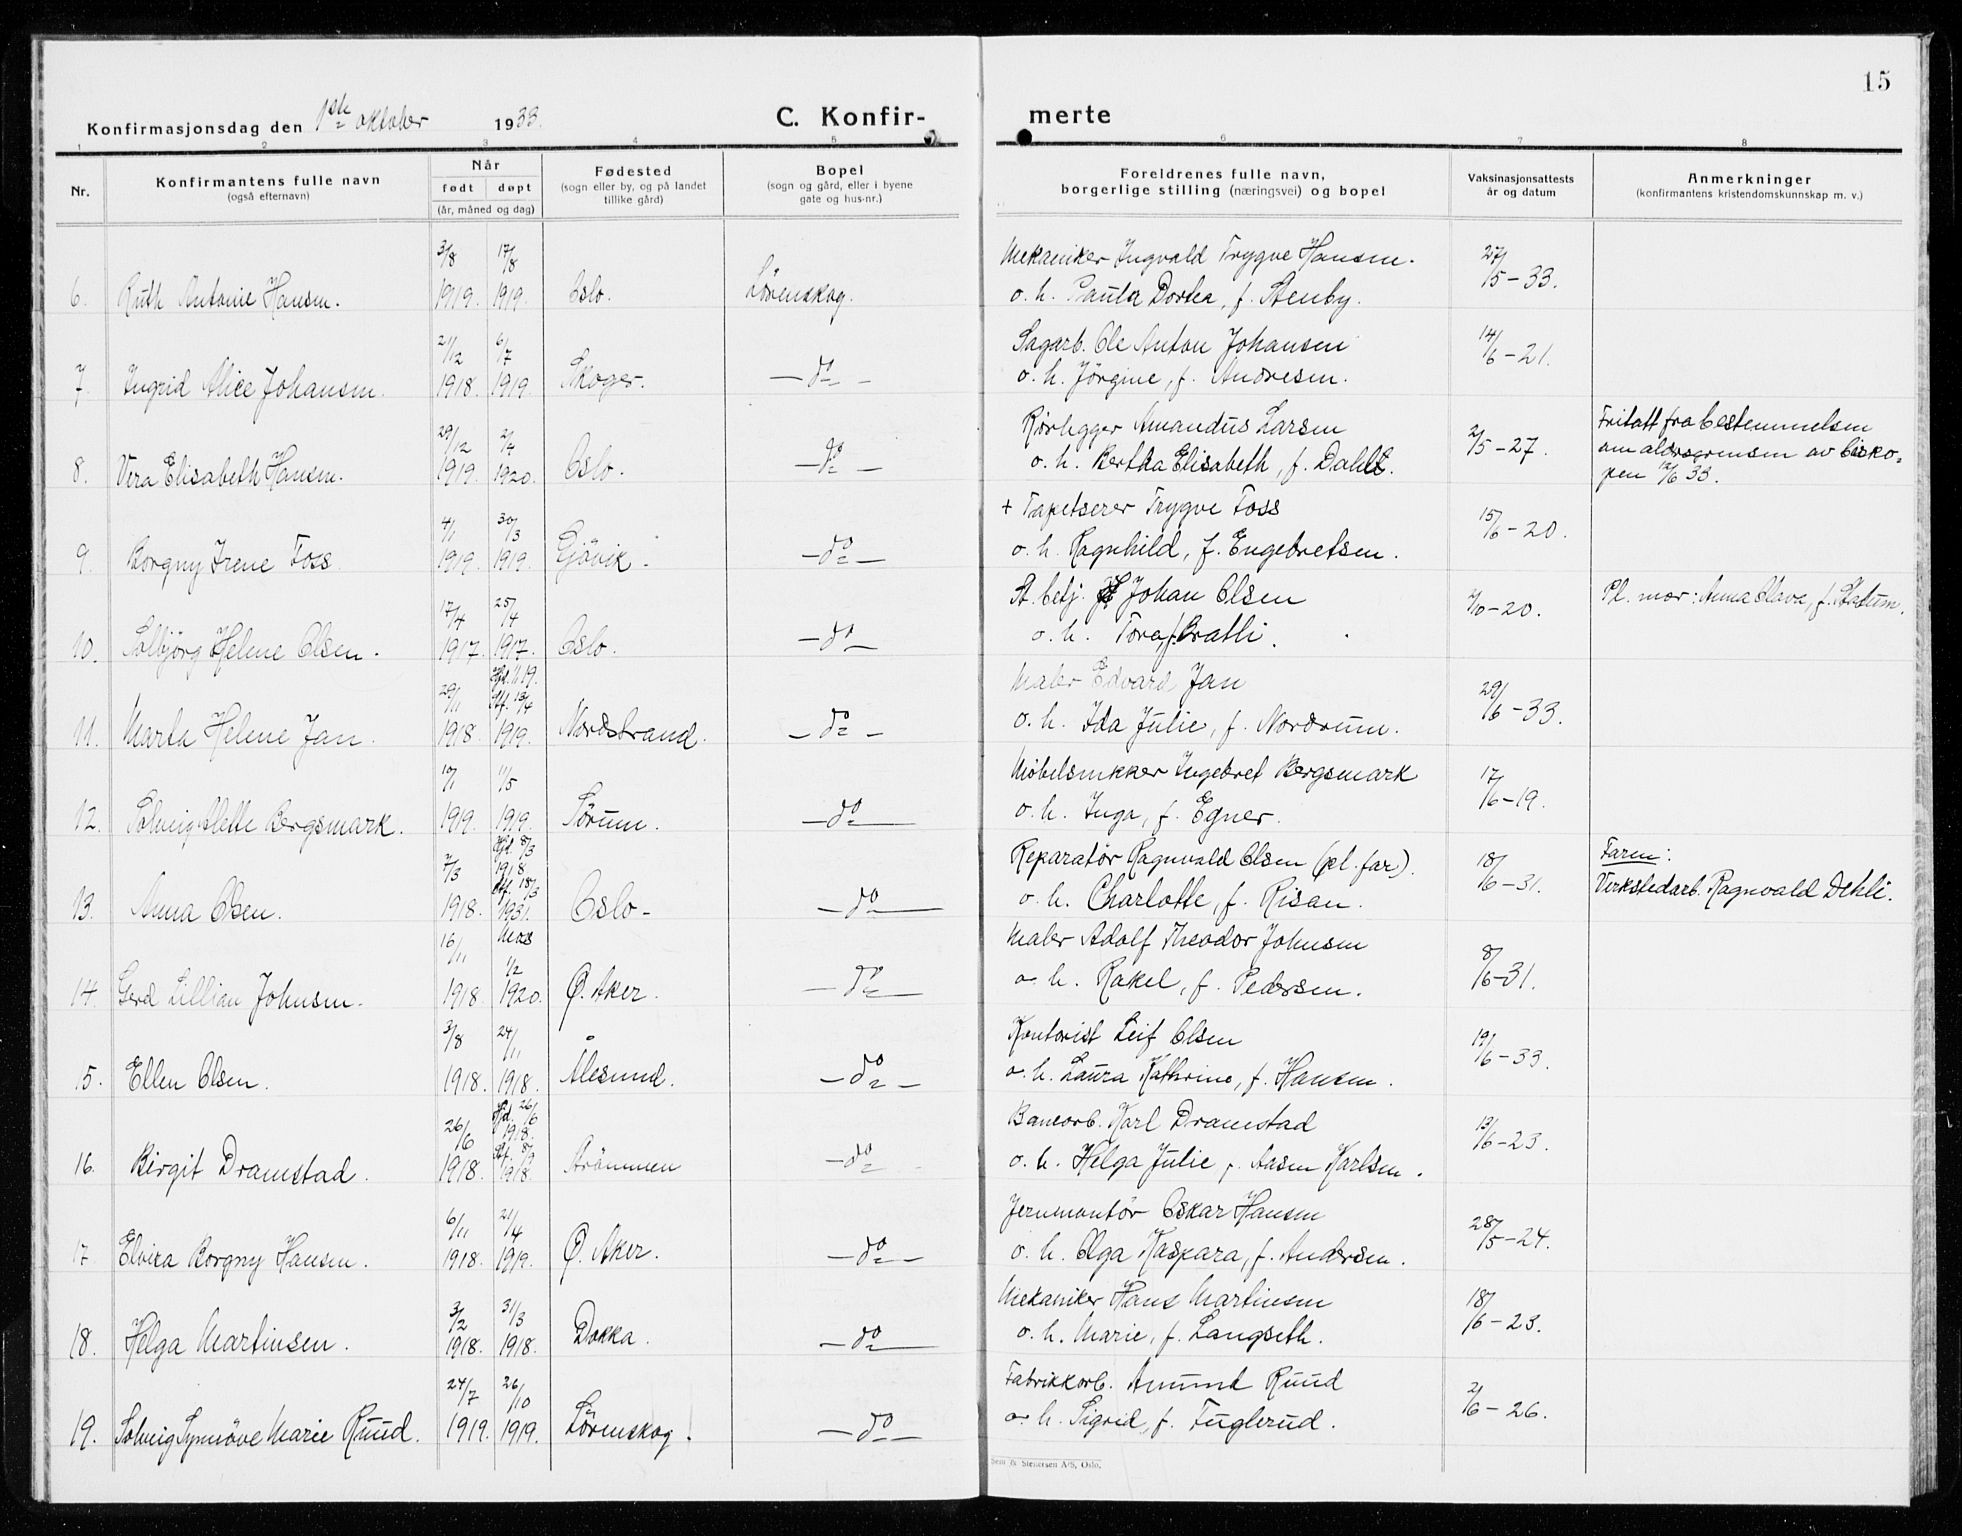 15
Konfirmasjonsdag den 1ste oktober 1933. C. Konfir- merte
1 2 3 4 5 6 7 8
Nr. Konfirmantens fulle navn (også efternavn) Når født døpt (år, måned og dag) Fødested (sogn eller by, og på landet tillike gård) Bopel (sogn og gård, eller i byene gate og hus-nr.) Foreldrenes fulle navn, borgerlige stilling (næringsvei) og bopel Vaksinasjonsattests år og datum Anmerkninger (konfirmantens kristendomskunnskap m. v.)
3/8 17/8 Mekaniker Ingvald Trygve Hansen. 27/5-33.
6. Ruth Antonie Hansen. 1919. 1919. Oslo. Lörenskog. o. h. Paula Dortea, f. Stenby.
21/12 6/7 Sagarb. Ole Anton Johansen 14/6-21.
7. Ingrid Alice Johansen. 1918. 1919. Skoger. - do - o. h. Jörgine, f. Andresen.
29/12 2/4 Rörlegger Amandus Larsen 2/5-27. Fritatt fra bestemmelsen
8. Vera Elisabeth Hansen. 1919. 1920. Oslo. - do - o. h. Bertha Elisabeth, f. Dahl. om aldersgrensen av bisko-
pen 12/6 33.
4/1 30/3 + Tapetserer Trygve Foss 15/6-20.
9. Borgny Irene Foss. 1919. 1919. Gjövik. - do - o. h. Ragnhild, f. Engebretsen.
17/4 25/4 St. betj. Johan Olsen 2/10-20. Pl. mor: Anna Slava, f.
10. Solbjörg Helene Olsen. 1917. 1917. Oslo. - do - o. h. Tora, f. Bratli.
29/11 Hjd. 1/1 19. Stf. 13/4 Maler Edvard Jan 29/6-33.
11. Marta Helene Jan. 1918. 1919. Nordstrand. - do - o. h. Ida Julie, f. Nordrum.
10/1 11/5 Möbelsnekker Ingebret Bergsmark 17/6-19.
12. Solveig Alette Bergsmark. 1919. 1919. Sörum. - do - o. h. Inga, f. Egner.
7/3 Hjd. 8/3 1918 Stf. 18/3 Reparatör Ragnvald Olsen (pl. far). 18/6-31. Faren:
13. Anna Olsen. 1918. 1931. Oslo - - do - o. h. Charlotte, f. Risan. Verkstedarb. Ragnvald Dehli.
16/11 Moss 1/2 Maler Adolf Theodor Johnsen 8/6-31.
14. Gerd Lillian Johnsen. 1918. 1920. Ø. Aker. - do - o. h. Rakel, f. Pedersen.
3/8 24/11 Kontorist Leif Olsen 19/6-33.
15. Ellen Olsen. 1918. 1918. Ålesund. - do - o. h. Laura Kathrine, f. Hansen.
26/6 Hjd. 26/6 1918. Stf. 8/9 Banearb. Karl Dramstad 13/6-23.
16. Birgit Dramstad. 1918. 1918. Strömmen - do - o. h. Helga Julie, f. Aasen Karlsen.
6/11 21/4 Jernmontör Oskar Hansen 28/5-24.
17 Elvira Borgny Hansen. 1918. 1919. Ø. Aker. - do - o. h. Olga Kaspara, f. Andersen.
3/2 31/3 Mekaniker Hans Martinsen 18/6-23.
18. Helga Martinsen. 1918. 1918. Dokka. - do - o. h. Marie, f. Langseth.
24/7 26/10 Fabrikkarb. Amund Ruud 2/6-26.
19. Solveig Synnöve Marie Ruud. 1919. 1919. Lörenskog. - do - o. h. Sigrid, f. Fuglerud.
Sem & Stenersen A/S, Oslo.